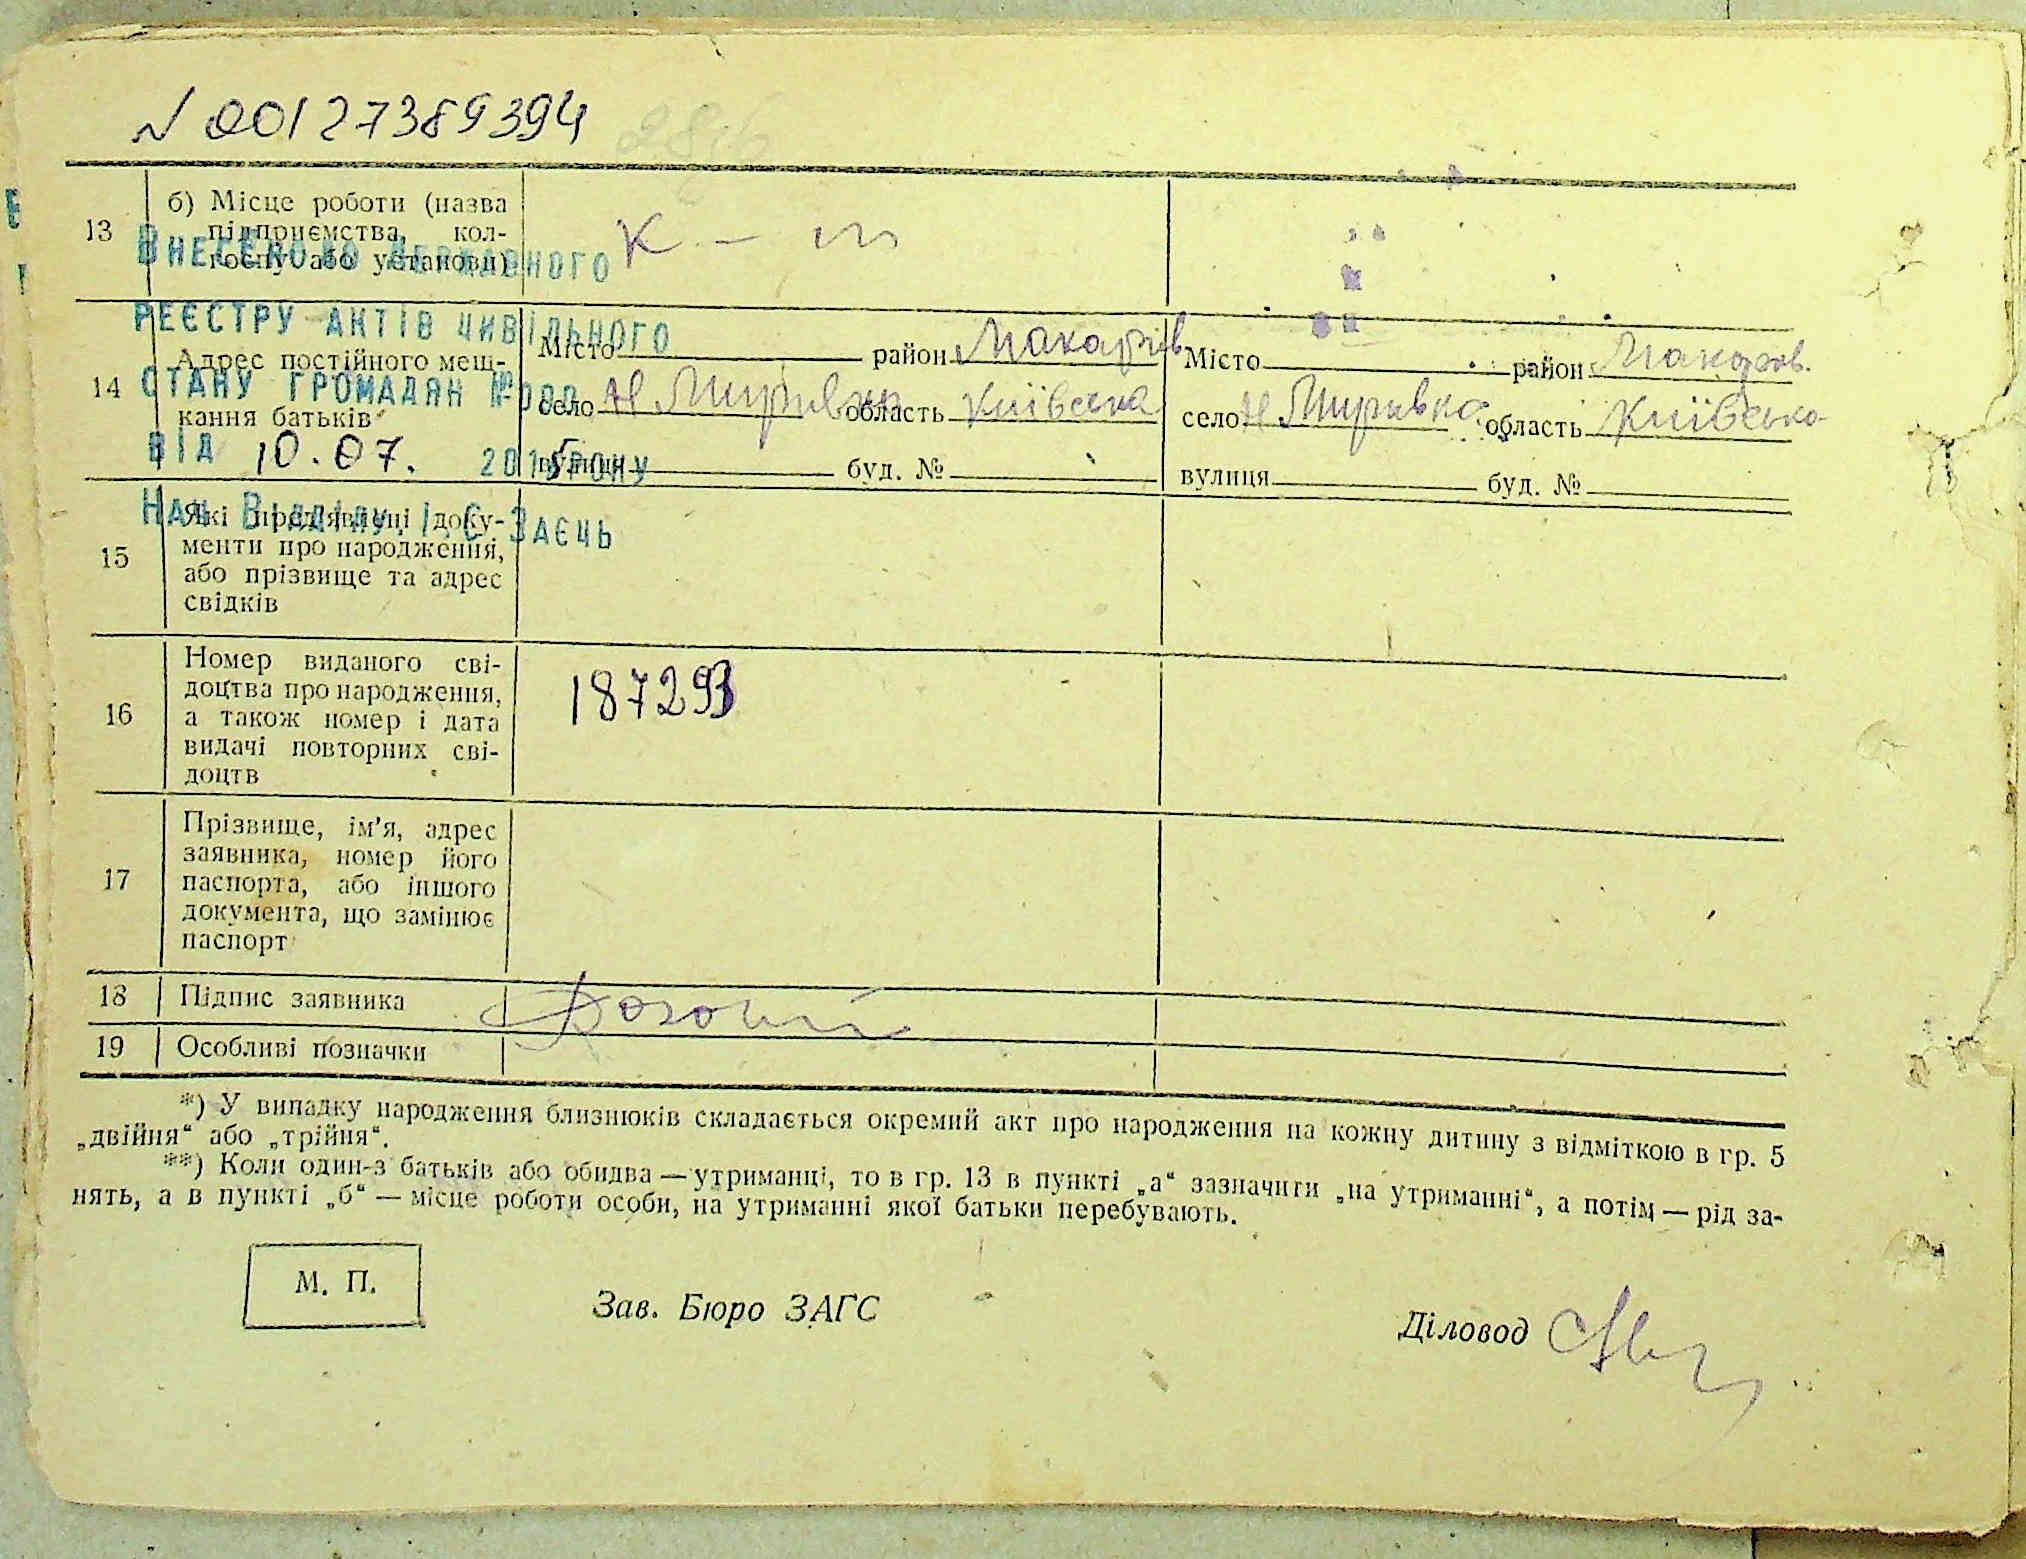 N 00127389394
286
13
б) Місце роботи (назва
підприємства, кол-
госпу або установи)
К – т
ВНЕСЕНО ДО ДЕРЖАВНОГО
РЕЄСТРУ АКТІВ ЦИВІЛЬНОГО
СТАНУ ГРОМАДЯН № 000
ВІД 10.07. 2015 РОКУ
НАЧ ВІДДІЛУ І.С ЗАЄЦЬ
14
Адрес постійного меш-
кання батьків
Місто район Макарів
село Н Мирівка область Київська
вулиця буд. №
Місто район Макарів.
село Н Мирівка область Київська
вулиця буд. №
15
Які пред'явлені доку-
менти про народження,
або прізвище та адрес
свідків
16
Номер виданого сві-
доцтва про народження,
а також номер і дата
видачі повторних сві-
доцтв
187293
17
Прізвище, ім'я, адрес
заявника, номер його
паспорта, або іншого
документа, що замінює
паспорт
18 Підпис заявника
19 Особливі позначки
*) У випадку народження близнюків складається окремий акт про народження на кожну дитину з відміткою в гр. 5
„двійня“ або „трійня“.
**) Коли один з батьків або обидва — утриманці, то в гр. 13 в пункті „а“ зазначити „на утриманні“, а потім — рід за-
нять, а в пункті „б“ — місце роботи особи, на утриманні якої батьки перебувають.
М. П.
Зав. Бюро ЗАГС
Діловод